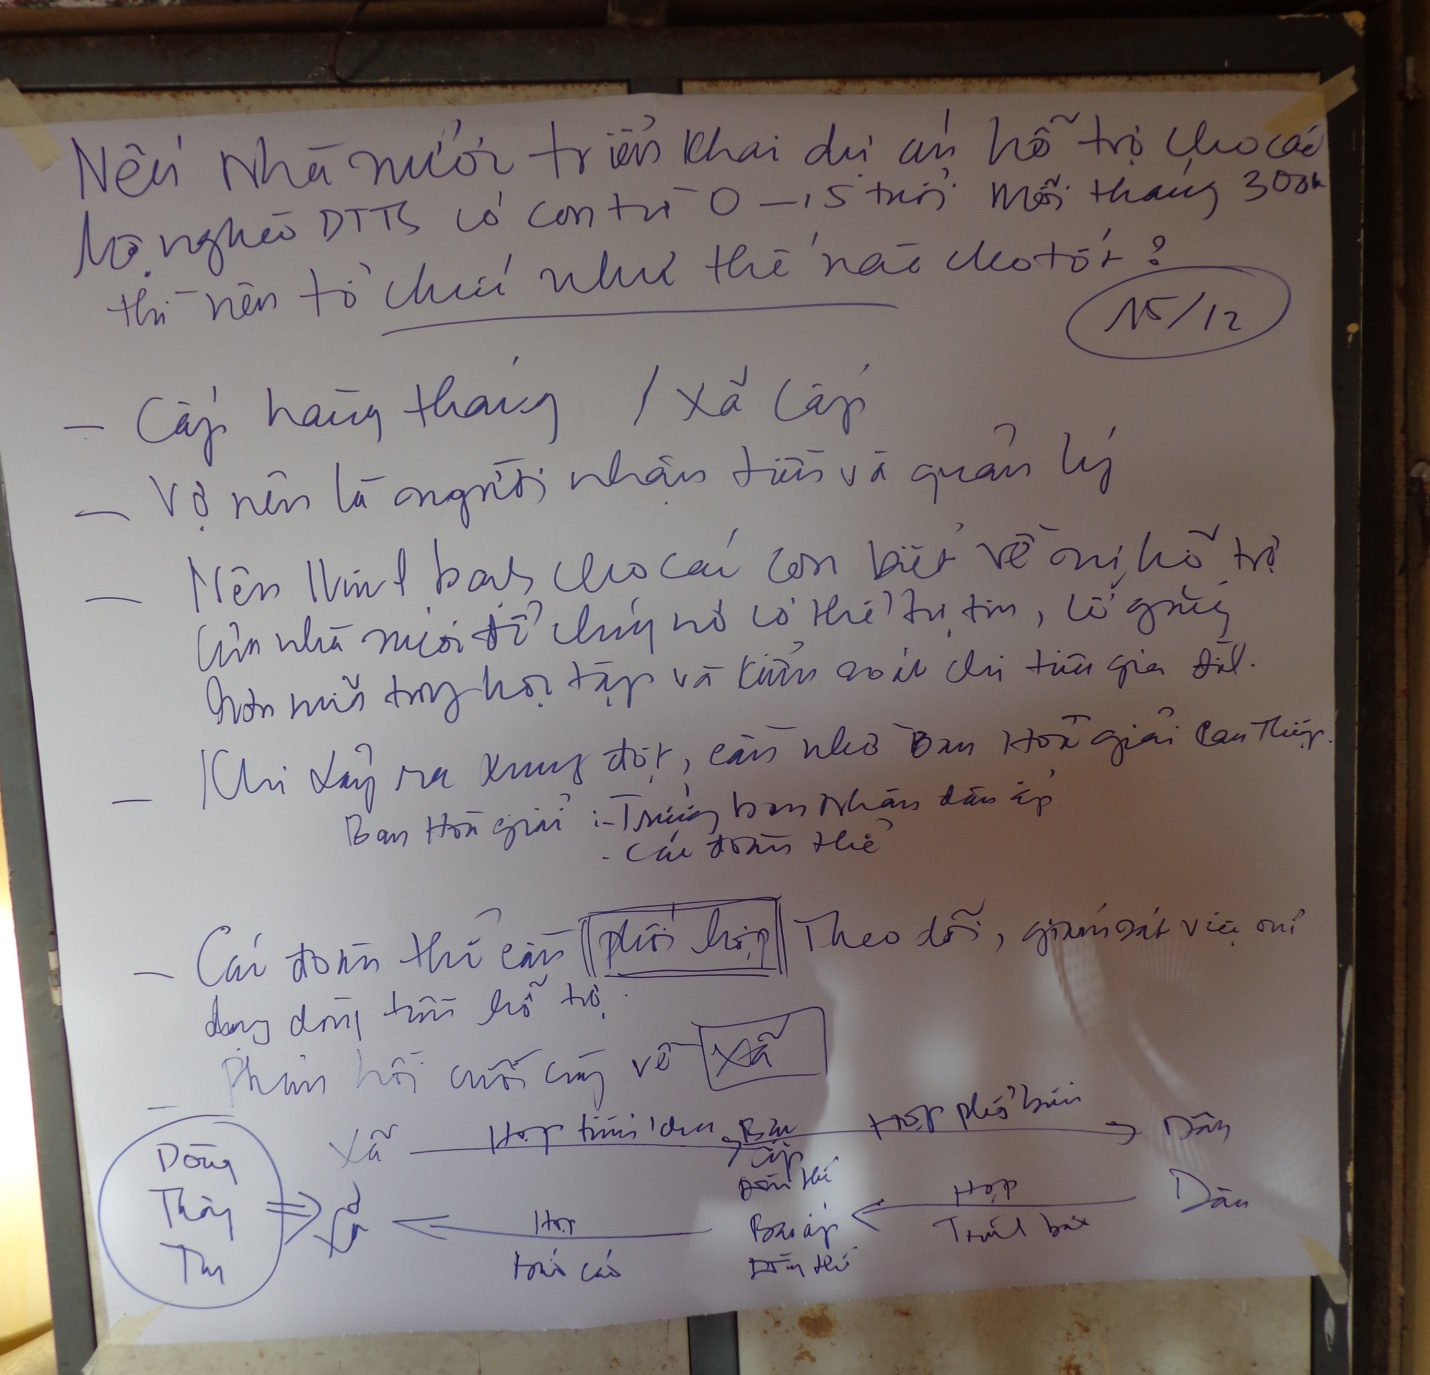 Nếu Nhà nước triển khai dự án hỗ trợ cho các
hộ nghèo DTTS có con từ 0 - 15 tuổi mỗi tháng 300k
thì nên tổ chức như thế nào cho tốt?
15/12
- Cấp hàng tháng / Xã cấp
- Vợ nên là người nhận tiền và quản lý
- Nên minh bạch cho các con biết về sự hỗ trợ
của nhà nước để chúng nó có thể tự tin, cố gắng
hơn nữa trong học tập và kiểm soát chi tiêu gia đình.
- Khi xảy ra xung đột, cần nhờ Ban Hòa giải can thiệp.
Ban Hòa giải : - Trưởng ban nhân dân ấp
- Các đoàn thể
- Các đoàn thể cần phối hợp Theo dõi, giám sát việc sử
dụng dòng tiền hỗ trợ.
Phản hồi cuối cùng về Xã
Xã Họp triển khai Ban ấp Đoàn thể Họp phổ biến Dân
Dòng Thông Tin
Xã Họp báo cáo Ban ấp Đoàn thể Họp Dân